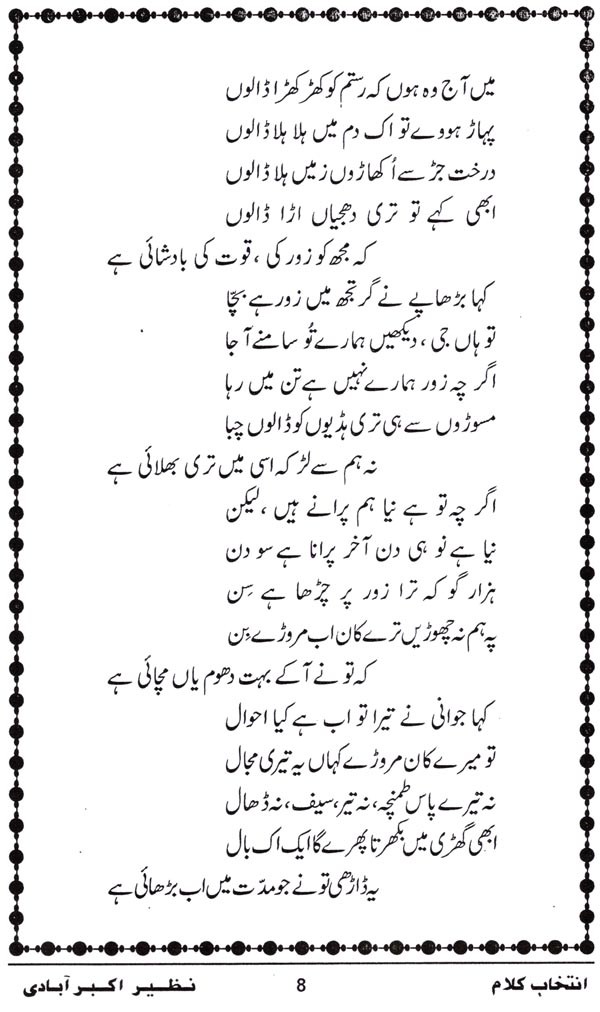 میں آج وہ ہوں کہ رستم کو کھڑ کھڑا ڈالوں
پہاڑ ہووے تو اک دم میں ہلا ہلا ڈالوں
درخت جڑ سے اُکھاڑوں زمیں ہلا ڈالوں
ابھی کہے تو تری دھجیاں اڑا ڈالوں
کہ مجھ کو زور کی، قوت کی بادشائی ہے
کہا بڑھاپے نے گر تجھ میں زور ہے بچّا
تو ہاں جی، دیکھیں ہمارے تُو سامنے آ جا
اگر چہ زور ہمارے نہیں ہے تن میں رہا
مسوڑوں سے ہی تری ہڈیوں کو ڈالوں چبا
نہ ہم سے لڑ کہ اسی میں تری بھلائی ہے
اگر چہ تو ہے نیا ہم پرانے ہیں، لیکن
نیا ہے نو ہی دن آخر پرانا ہے سو دن
ہزار گو کہ ترا زور پر چڑھا ہے سِن
پہ ہم نہ چھوڑیں ترے کان اب مروڑے بِن
کہ تو نے آ کے بہت دھوم یاں مچائی ہے
کہا جوانی نے تیرا تو اب ہے کیا احوال
تو میرے کان مروڑے کہاں یہ تیری مجال
نہ تیرے پاس طمنچہ، نہ تیر، سیف، نہ ڈھال
ابھی گھڑی میں بکھرتا پھرے گا ایک اک بال
یہ ڈاڑھی تو نے جو مدّت میں اب بڑھائی ہے
انتخابِ کلام 8 نظیر اکبر آبادی